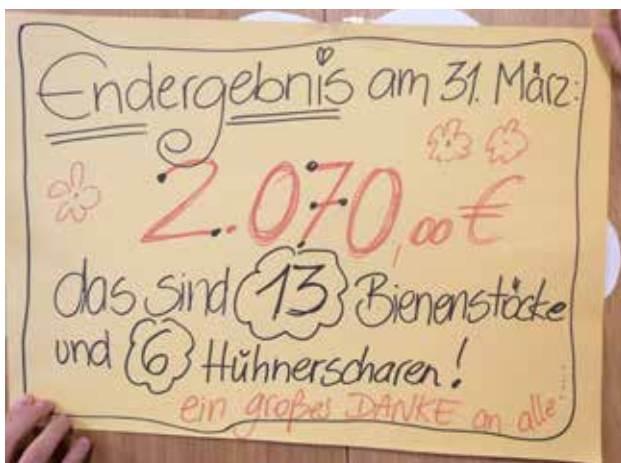 Endergebnis am 31. März:
2.070,00 €
das sind 13 Bienenstöcke
und 6 Hühnerscharen!
ein großes DANKE an alle